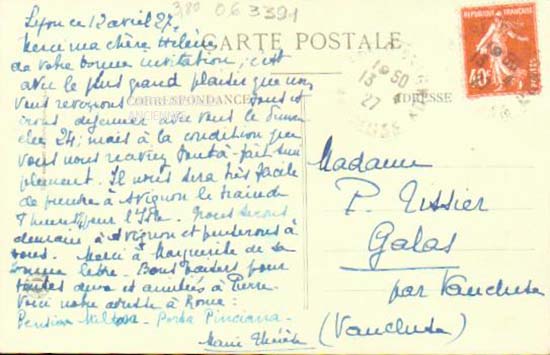 380 063391
Lyon ce 12 avril 27.
Merci ma chère Hélène
de votre bonne invitation, c'est
avec le plus grand plaisir que nous
vous reverrons tous et
irons déjeuner avec vous le
24; mais à la condition que
vous nous
plement. Il nous sera très facile
de prendre à Avignon le train de
pour l'Isle. Nous serons
demain à Avignon et penserons à
vous. Merci à Marguerite de sa
bonne lettre. Bons baisers pour
toutes deux et amitiés à Pierre
Voici notre adresse à Rome:
Pension - Porta Pinciana.
Marie Thérèse
CARTE POSTALE
CORRESPONDANCE
ADRESSE
RÉPUBLIQUE FRANÇAISE
40c
50
13
27
Madame
P. Tissier
Galas
par Vaucluse
(Vaucluse)